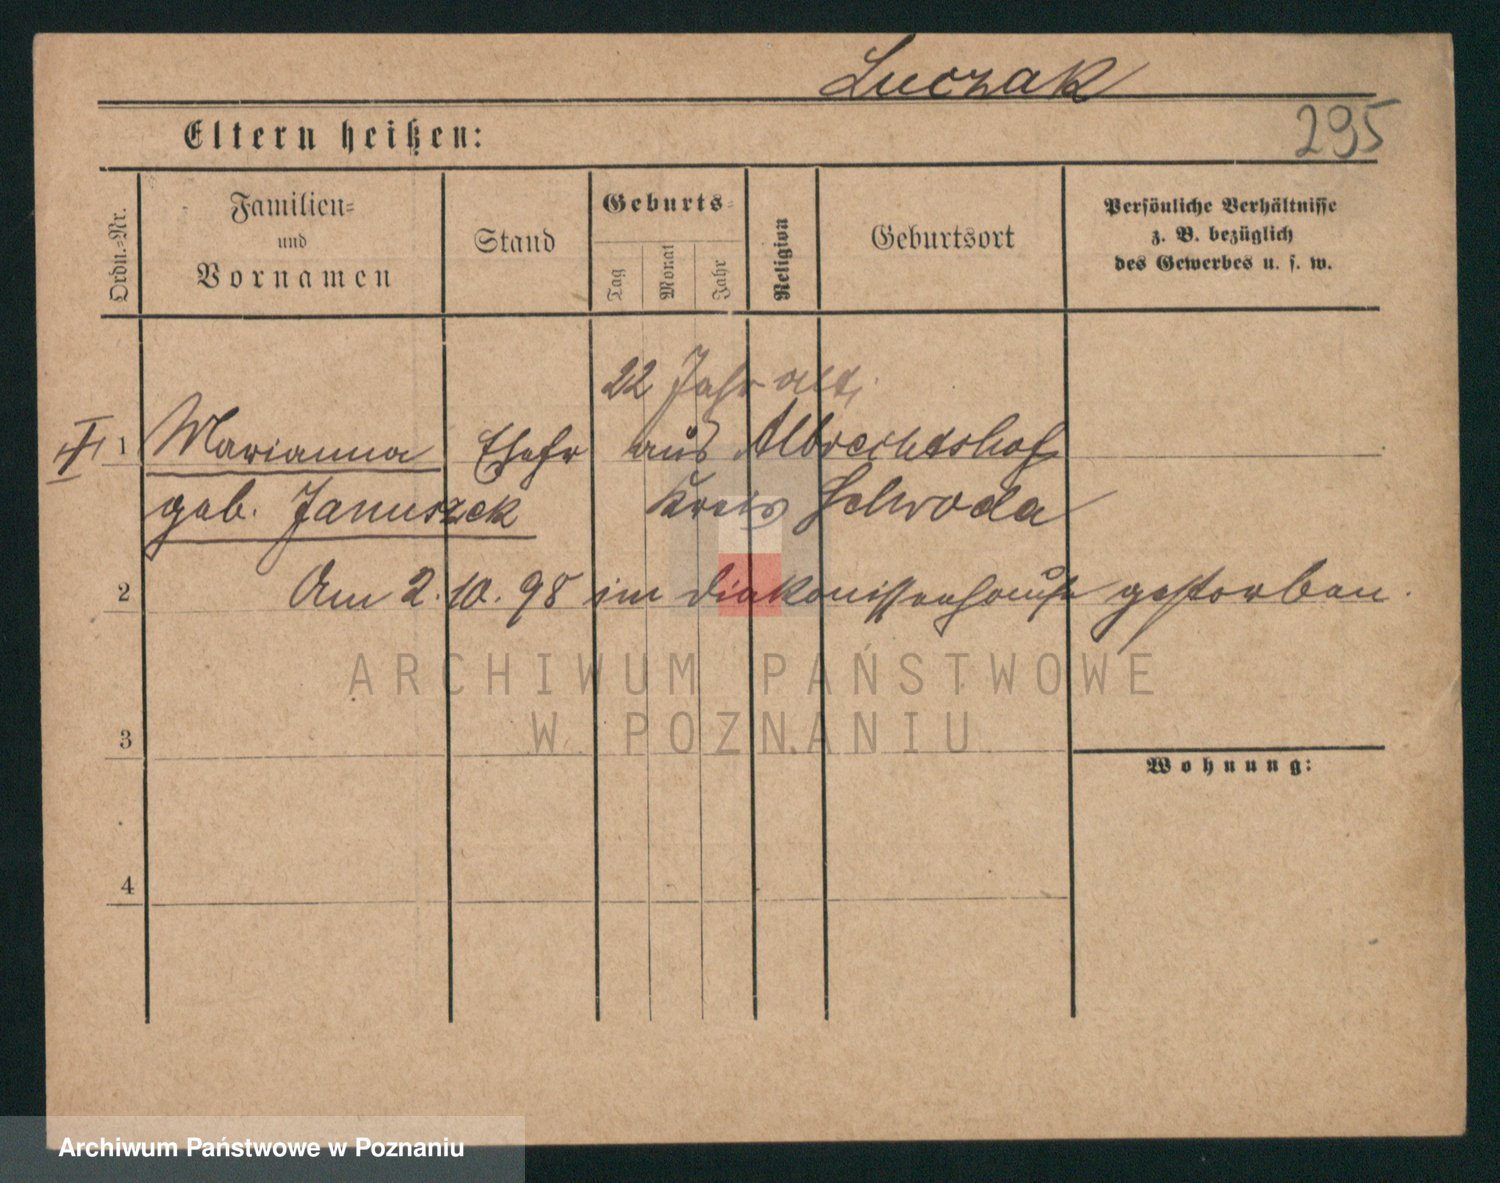 Luczak
295
Eltern heißen:
Ordn.=Nr.
Familien=
und
Vornamen
Stand
Geburts=
Tag
Monat
Jahr
Religion
Geburtsort
Persönliche Verhältnisse
z. B. bezüglich
des Gewerbes u. s. w.
22 Jahr alt,
1 Marianna Ehefr aus Albrechtshof
geb. Januszek Kreis Schroda
2 Am 2.10.98 im Diakonissenhause gestorben.
ARCHIWUM PAŃSTWOWE
W POZNANIU
3
Wohnung:
4
Archiwum Państwowe w Poznaniu